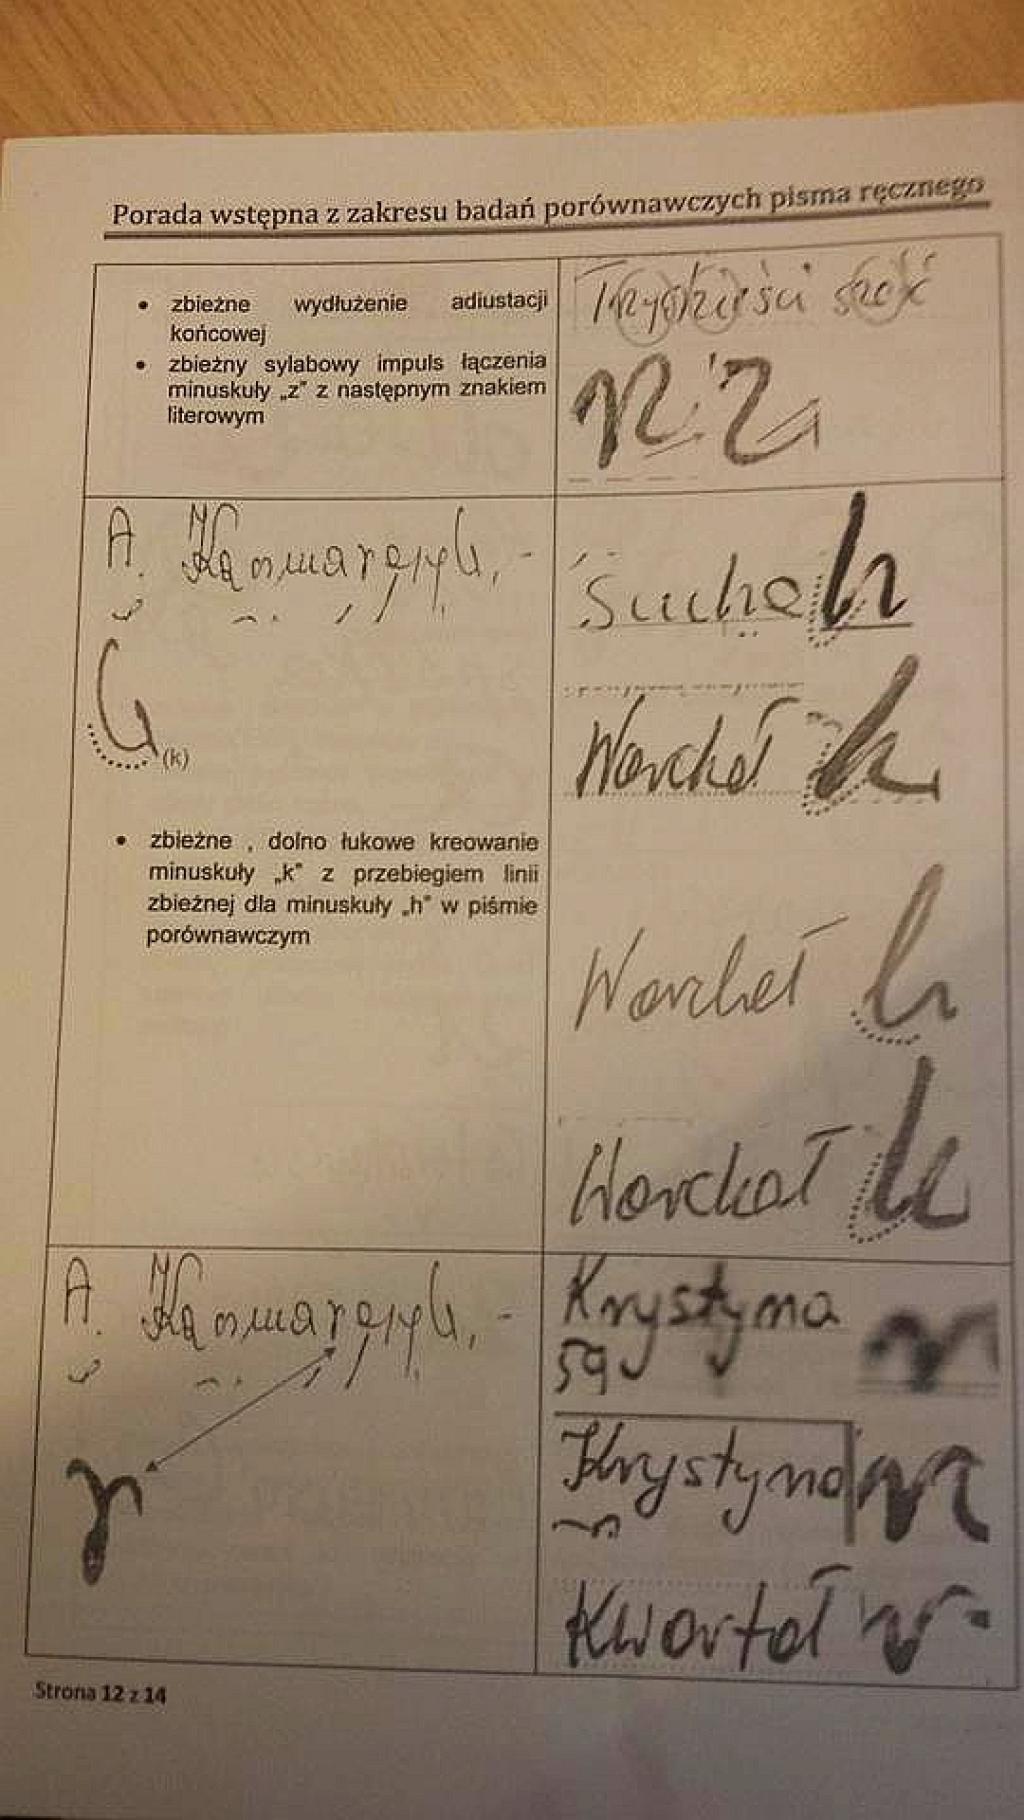 Porada wstępna z zakresu badań porównawczych pisma ręcznego
• zbieżne wydłużenie adiustacji
końcowej
• zbieżny sylabowy impuls łączenia
minuskuły „z” z następnym znakiem
literowym
Trzydzieści sześć
A.
Sucha h
Warchoł k
(k)
• zbieżne , dolno łukowe kreowanie
minuskuły „k” z przebiegiem linii
zbieżnej dla minuskuły „h” w piśmie
porównawczym
Warchoł h
Warchoł k
A.
Krystyna
59
r
Krystyna
Kwartał r
Strona 12 z 14